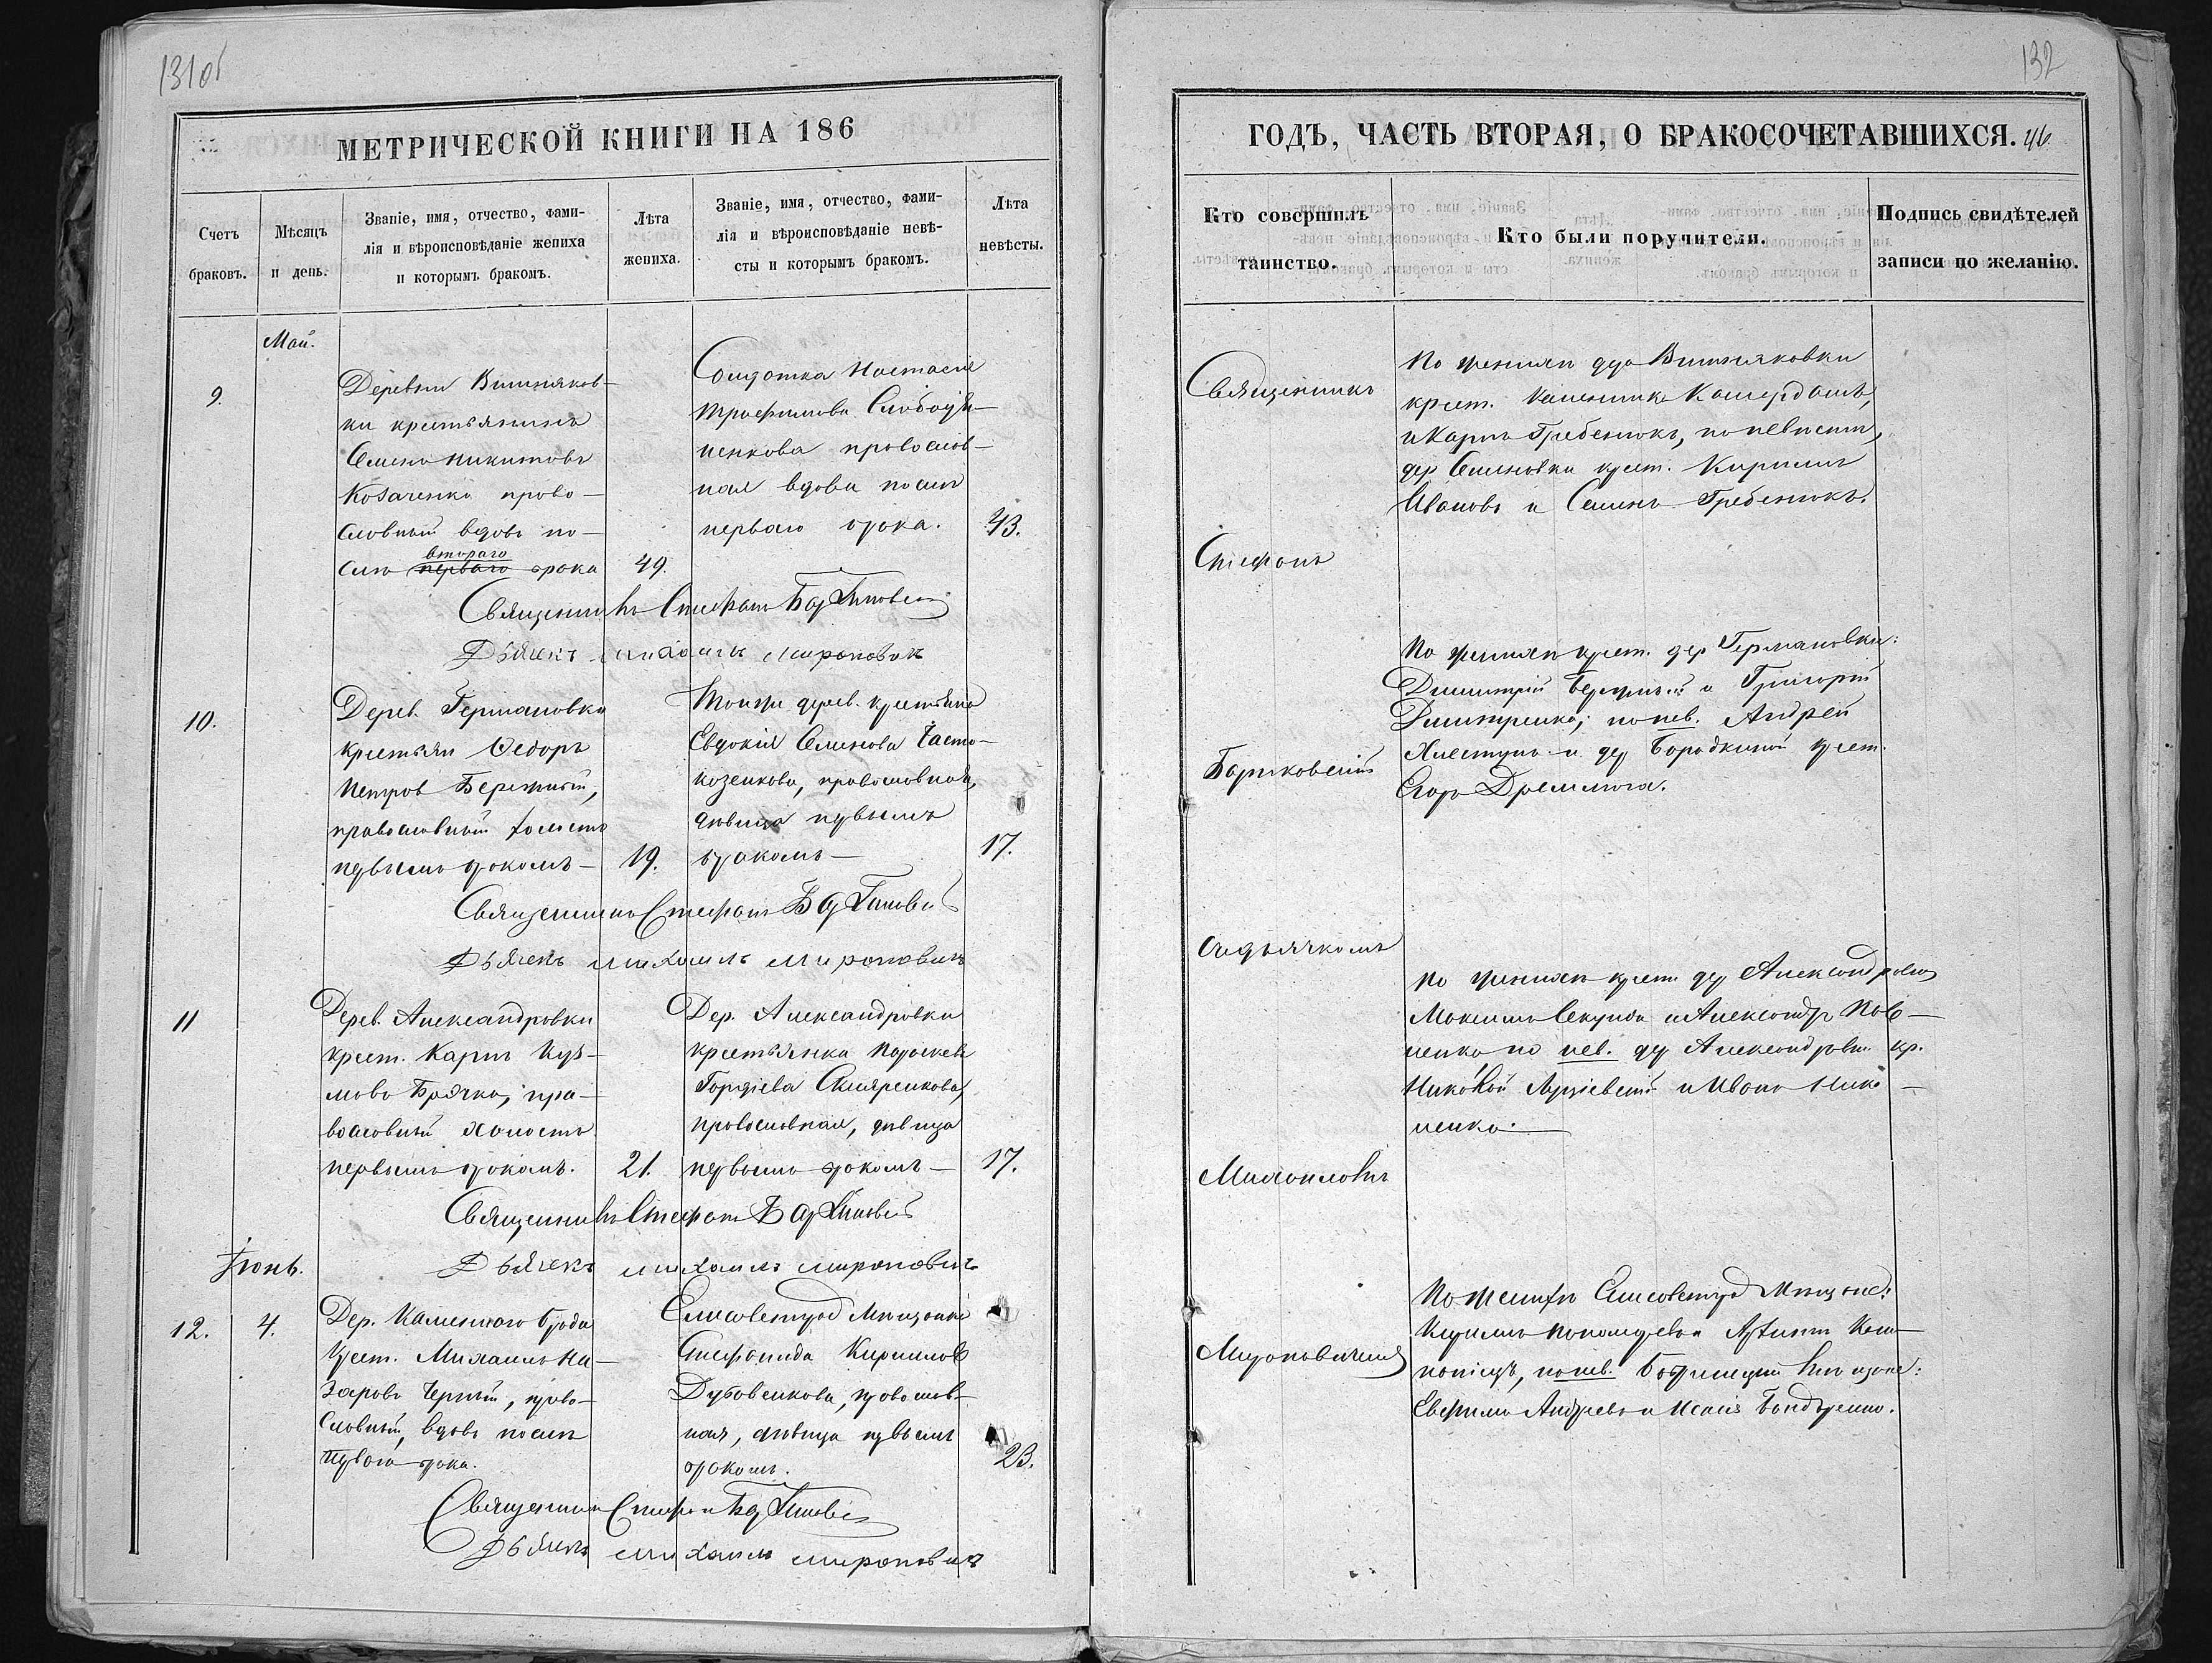 131об
132
МЕТРИЧЕСКОЙ КНИГИ НА 186
Счетъ браковъ.
Мѣсяцъ и день.
Званіе, имя, отчество, фами-
лія и вѣроисповѣданіе жениха
и которымъ бракомъ.
Лѣта жениха.
Званіе, имя, отчество, фами-
лія и вѣроисповѣданіе невѣ-
сты и которымъ бракомъ.
Лѣта невѣсты.
Май.
9.
Деревни Вишняков-
ки крестьянинъ
Семенъ Никитовъ
Козаченко право-
славный вдовъ по-
слѣ первого втораго брака
49.
Солдатка Настасія
Трофимова Слободя-
ненкова православ-
ная вдова послѣ
перваго брака.
43.
Священникъ Стефанъ
Дьячекъ Михаилъ Мироновичъ
10.
Дерев. Германовки
крестьян Ѳедоръ
Петров Бережный,
православный холостъ
первымъ бракомъ—
19.
Тойже дерев. крестьянка
Евдокія Семенова Часто-
козенкова, православная,
дѣвица первымъ
бракомъ—
17.
Священникъ Стефанъ
Дьячекъ Михаилъ Мироновичъ
11
Дерев. Александровки
крест. Карпъ Куз-
мовъ Брячко, пра-
вославный холостъ
первымъ бракомъ.
21.
Дер. Александровки
крестьянка Параскева
Гордіева
православная, дѣвица
первымъ бракомъ—
17.
Священникъ Стефанъ
Дьячекъ Михаилъ Мироновичъ
Іюнь.
12.
4.
Дер. Каменного Брода
Крест. Михаилъ На-
заровъ Черный, право-
славный, вдовъ послѣ
Перваго брака.
Елисаветград Мѣщанка
Стефанида Кирилов
Дубовенкова, православ-
ная, дѣвица первымъ
бракомъ.
23.
Священникъ Стефанъ
Дьячекъ Михаилъ Мироновичъ
ГОДЪ, ЧАСТЬ ВТОРАЯ, О БРАКОСОЧЕТАВШИХСЯ. 46
Кто совершилъ таинство.
Кто были поручители.
Подпись свидѣтелей записи по желанію.
Священникъ
Стефанъ
Бартковскій
Съ дьячкомъ
Михаиломъ
Мироновичемъ
По женихѣ дер Вишняковки
крест.
и Карпъ Гребенюкъ, по невѣстѣ,
дер Семеновки крест. Кирилъ
Ивановъ и Семенъ Гребенюкъ.
По женихѣ крест. дер Германовки:
Димитрій Бережный и Григорій
Дмитренко, по нев. Андрей
Хлестунъ и дер Бородкиной крест.
Егоръ Дремлюга.
По женихѣ крест. дер Александровки
Максимъ Секунда и Александръ Пав-
ленко по нев. дер Александровки кр.
Николай и Иванъ Нико-
ленко.—
По женихѣ Елисаветград Мѣщане:
Кирилъ и
по нев. мѣщане:
Евфимъ Андреевъ и Исаія Бондаренко.